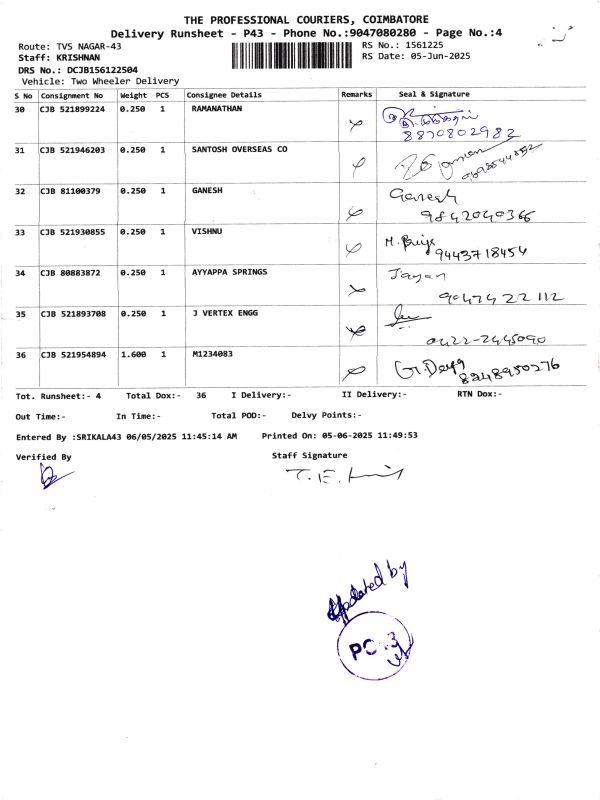 THE PROFESSIONAL COURIERS, COIMBATORE
Delivery Runsheet - P43 - Phone No.:9047080280 - Page No.:4
Route: TVS NAGAR-43 RS No.: 1561225
Staff: KRISHNAN RS Date: 05-Jun-2025
DRS No.: DCJB156122504
Vehicle: Two Wheeler Delivery
S No Consignment No Weight PCS Consignee Details Remarks Seal & Signature
30 CJB 521899224 0.250 1 RAMANATHAN
8870802982
31 CJB 521946203 0.250 1 SANTOSH OVERSEAS CO
32 CJB 81100379 0.250 1 GANESH Ganesh
9842040366
33 CJB 521930855 0.250 1 VISHNU M.
9443718454
34 CJB 80883872 0.250 1 AYYAPPA SPRINGS Jayan
9047422112
35 CJB 521893708 0.250 1 J VERTEX ENGG
0422-2445090
36 CJB 521954894 1.600 1 M1234083
8248950276
Tot. Runsheet:- 4 Total Dox:- 36 I Delivery:- II Delivery:- RTN Dox:-
Out Time:- In Time:- Total POD:- Delvy Points:-
Entered By :SRIKALA43 06/05/2025 11:45:14 AM Printed On: 05-06-2025 11:49:53
Verified By Staff Signature
Updated by